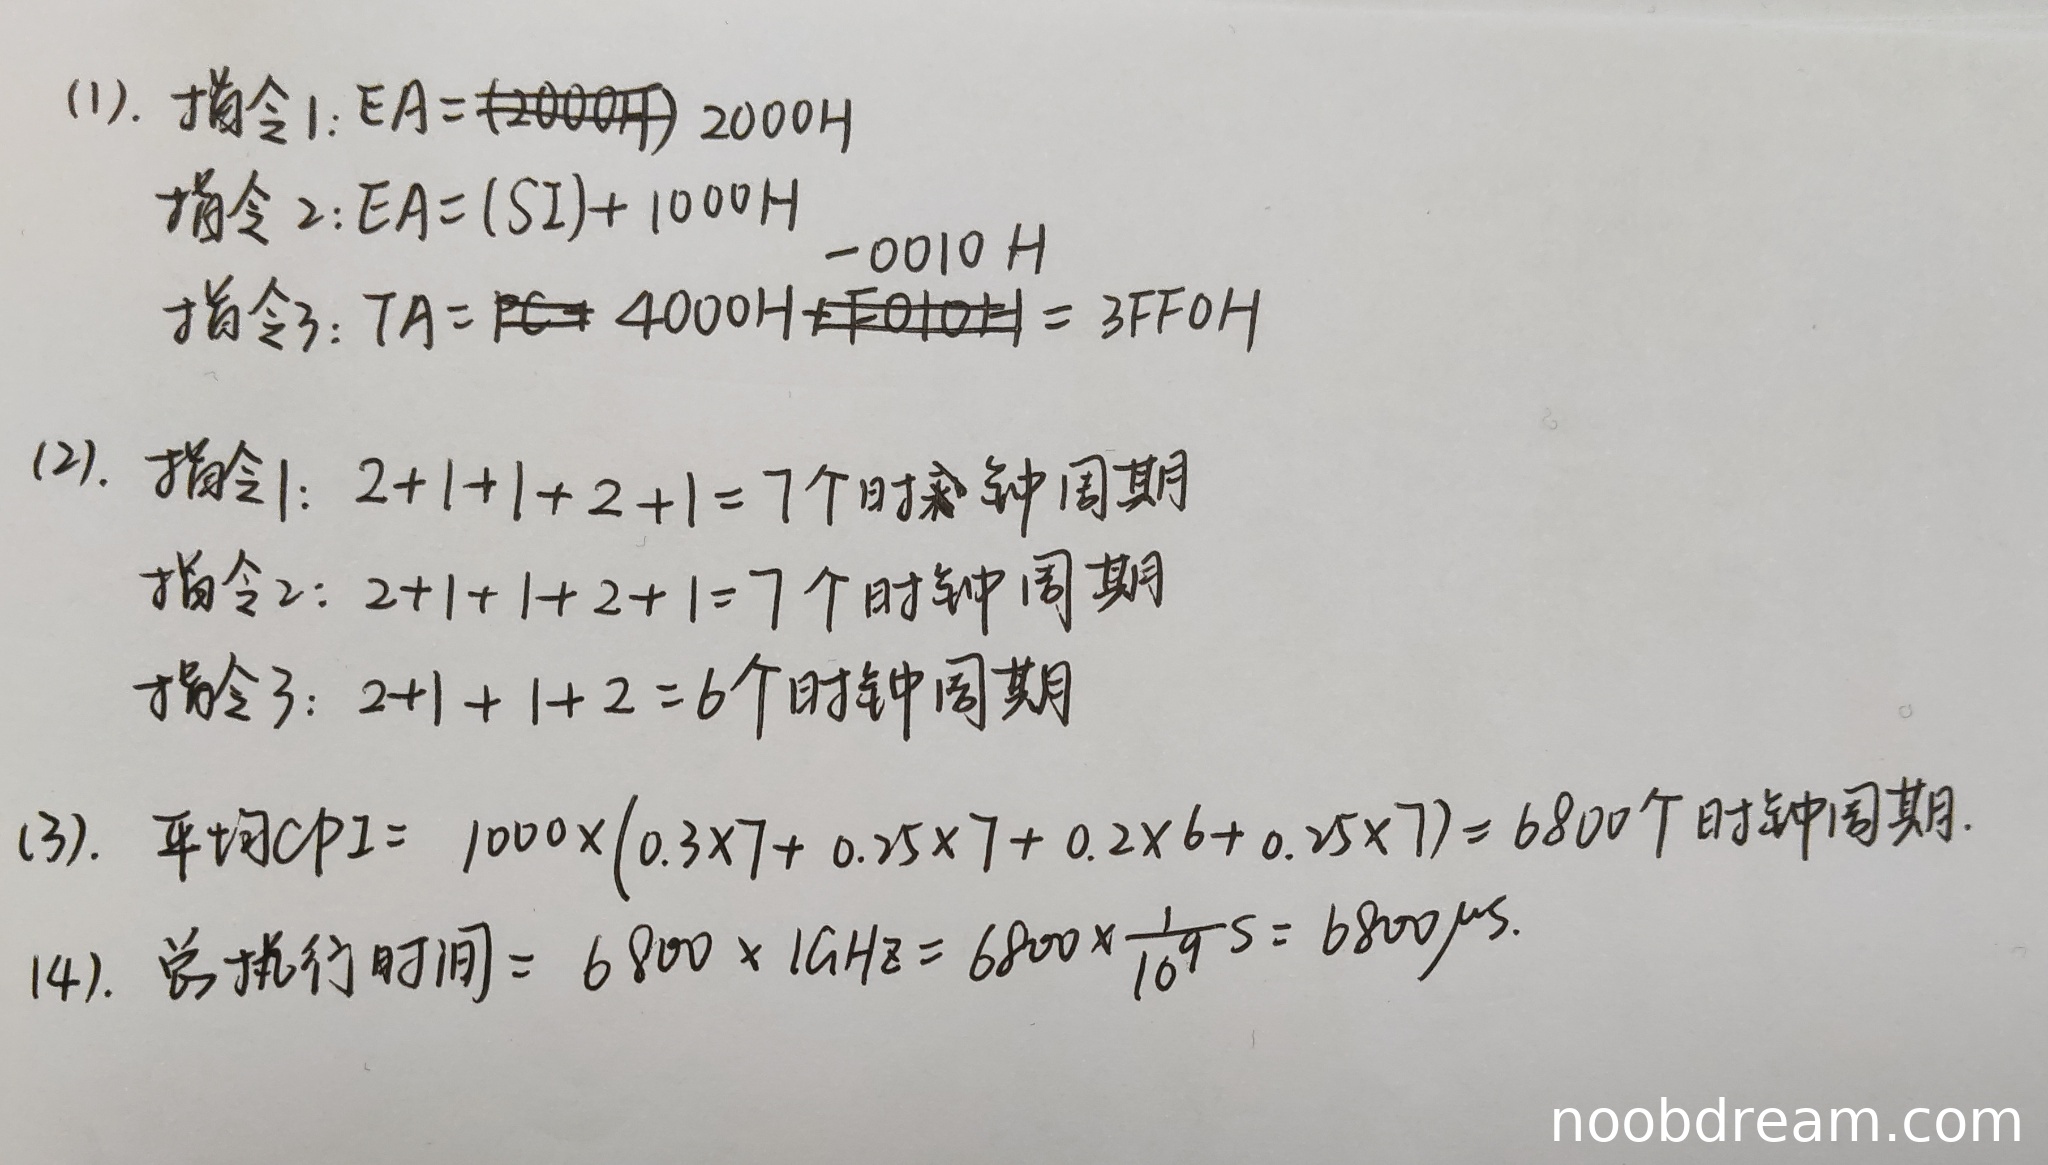 (1). 指令1: EA = (2000H) 2000H
指令2: EA = (SI) + 1000H
-0010 H
指令3: TA = PC + 4000H + F010H = 3FF0H
(2). 指令1: 2+1+1+2+1=7个时钟周期
指令2: 2+1+1+2+1=7个时钟周期
指令3: 2+1+1+2=6个时钟周期
(3). 平均CPI= 1000×(0.3×7+0.25×7+0.2×6+0.25×7)=6800个时钟周期.
(4). 总执行时间= 6800×1GHz=6800×1/10^9 s=6800μs.
noobdream.com